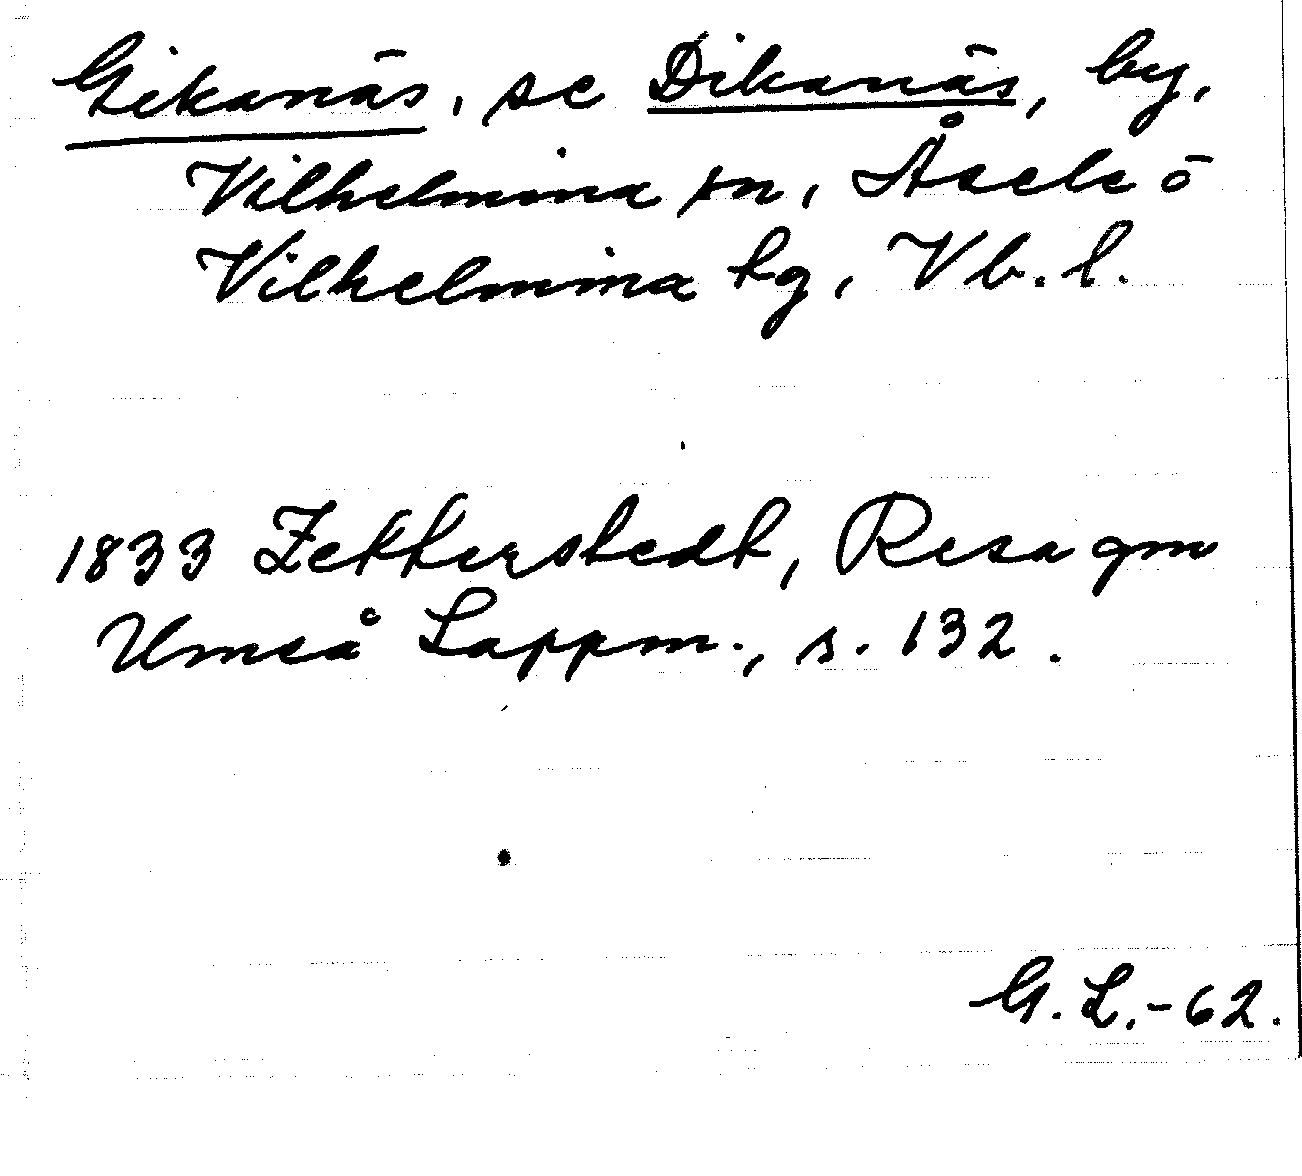 Gikanäs, se Dikanäs, by,
Vilhelmina sn, Åsele ō
Vilhelmina tg, Vb. l.
1833 Zetterstedt, Resa gm
Umeå Lappm., s. 132.
G. L. - 62.